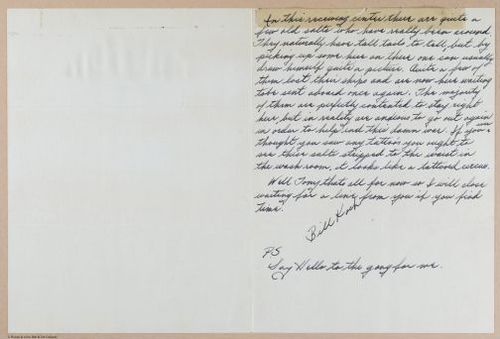 In this receiving center there are quite a
few old salts who have really been around.
They naturally have tall tails to tell, but by
picking up some here an there one can usually
draw himself quite a picture. Quite a few of
them lost their ships and are now here waiting
to be sent aboard once again. The majority
of them are pefectly contented to stay right
here, but in reality are anxious to go out again
in order to help end this damn war. If you ever
thought you saw any tattoos you ought to
see these salts stripped to the waist in
the wash room, it looks like a tattooed circus.
Well Tony thats all for now so I will close
waiting for a line from you if you find
time.
Bill
PS
Say Hello to the gang for me.